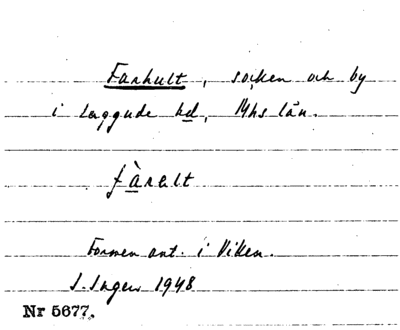 Farhult, socken och by
i Luggude hd, Mhs län.
fàrelt
Formen ant. i Viken.
S. Ingers 1948
Nr 5677.